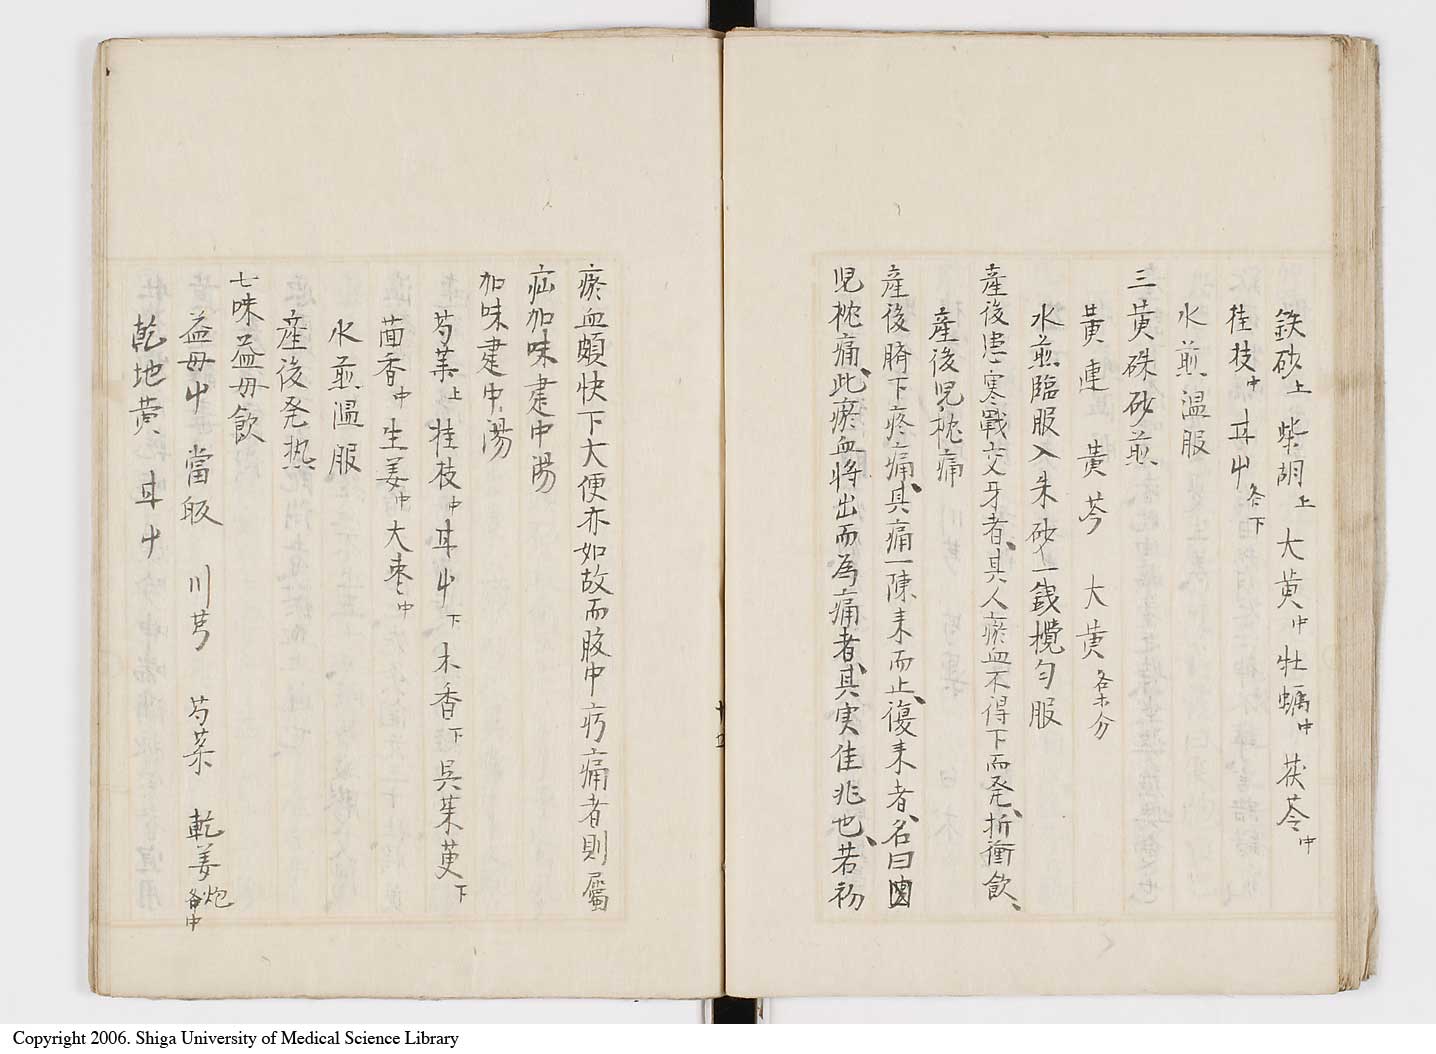 鉄砂上 柴胡上 大黄中 牡蠣中 茯苓中
桂枝中 甘屮各下
水煎温服
三黄硃砂煎
黄連 黄芩 大黄各六分
水煎臨服入朱砂一銭攪匀服
産後患寒戰交牙者其人瘀血不得下而発折衝飲
産後児枕痛
産後臍下疼痛其痛一陳来而止復来者名曰
児枕痛此瘀血将出而為痛者其実佳兆也若初
瘀血頗快下大便亦如故而腹中㽲痛者則屬
疝加味建中湯
加味建中湯
芍薬上 桂枝中 甘屮下 木香下 呉茱萸下
茴香中 生姜中 大棗中
水煎温服
産後発热
七味益母飲
益母屮 當皈 川芎 芍薬 乾姜炮各中
乾地黄 甘屮
Copyright 2006. Shiga University of Medical Science Library